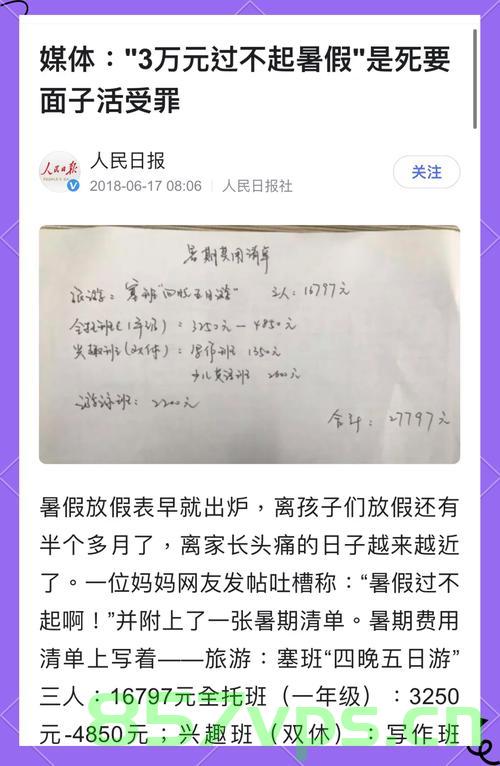 媒体："3万元过不起暑假"是死要
面子活受罪
人民日报
人民日报
PEOPLE'S DAILY
2018-06-17 08:06 | 人民日报社
关注
暑期费用清单
旅游：塞班"四晚五日游" 三人：16797元
全托班(1年级)：3250元—4850元
兴趣班(双休)：写作班 1350元
少儿英语班 2600元
游泳班：2200元
合计：27797元
暑假放假表早就出炉，离孩子们放假还有
半个多月了，离家长头痛的日子越来越近
了。一位妈妈网友发帖吐槽称：“暑假过不
起啊！”并附上了一张暑期清单。暑期费用
清单上写着——旅游：塞班“四晚五日游”
三人：16797元全托班（一年级）：3250
元-4850元；兴趣班（双休）：写作班
857vps.cn